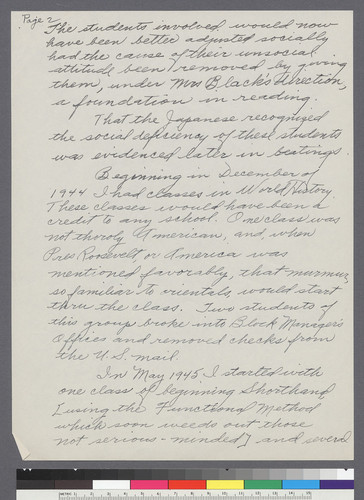 Page 2
The students involved would now
have been better adjusted socially
had the cause of their unsocial
attitude been removed by giving
them, under Mrs Black's direction,
a foundation in reading.
That the Japanese recognized
the social deficiency of these students
was evidenced later in beatings.
Beginning in December of
1944 I had classes in World History.
These classes would have been a
credit to any school. One class was
not thoroly American, and, when
Pres Roosevelt or America was
mentioned favorably, that murmur,
so familiar to orientals, would start
thru the class. Two students of
this group broke into Block Managers
Offices and removed checks from
the U.S. mail.
In May 1945 I started with
one class of beginning Shorthand
[using the Functional Method
which soon weeds out those
not serious-minded] and several